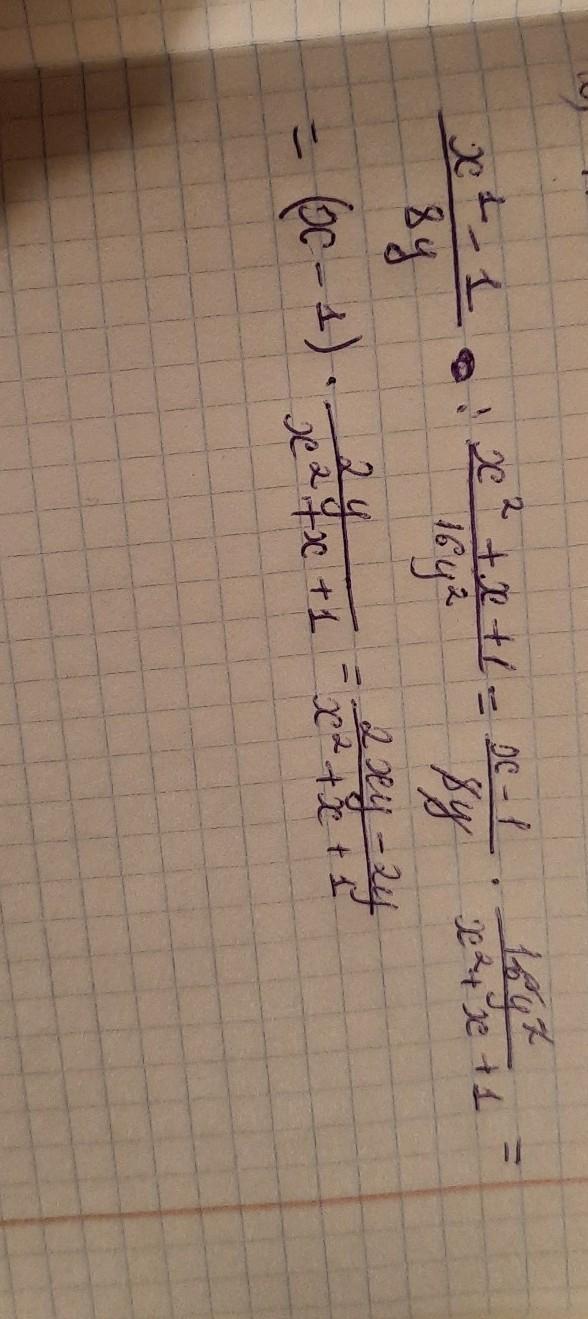 x¹ - 1 / 8y : x² + x + 1 / 16y² = x - 1 / 8y · 16y² / x² + x + 1 =
= (x - 1) · 2y / x² + x + 1 = 2xy - 2y / x² + x + 1